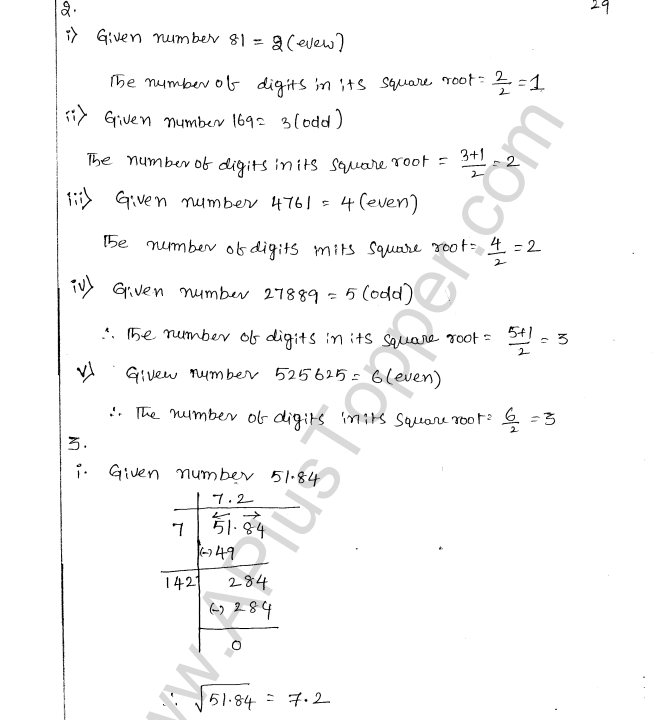 29
2.
i) Given number 81 = 2 (even)
The number of digits in its square root = 2/2 = 1
ii) Given number 169 = 3 (odd)
The number of digits in its square root = 3+1/2 = 2
iii) Given number 4761 = 4 (even)
The number of digits in its square root = 4/2 = 2
iv) Given number 27889 = 5 (odd)
∴ The number of digits in its square root = 5+1/2 = 3
v) Given number 525625 = 6 (even)
∴ The number of digits in its square root = 6/2 = 3
3.
i. Given number 51.84
7.2
7 51.84
(-) 49
142 284
(-) 284
0
∴ √51.84 = 7.2
www.APlusTopper.com